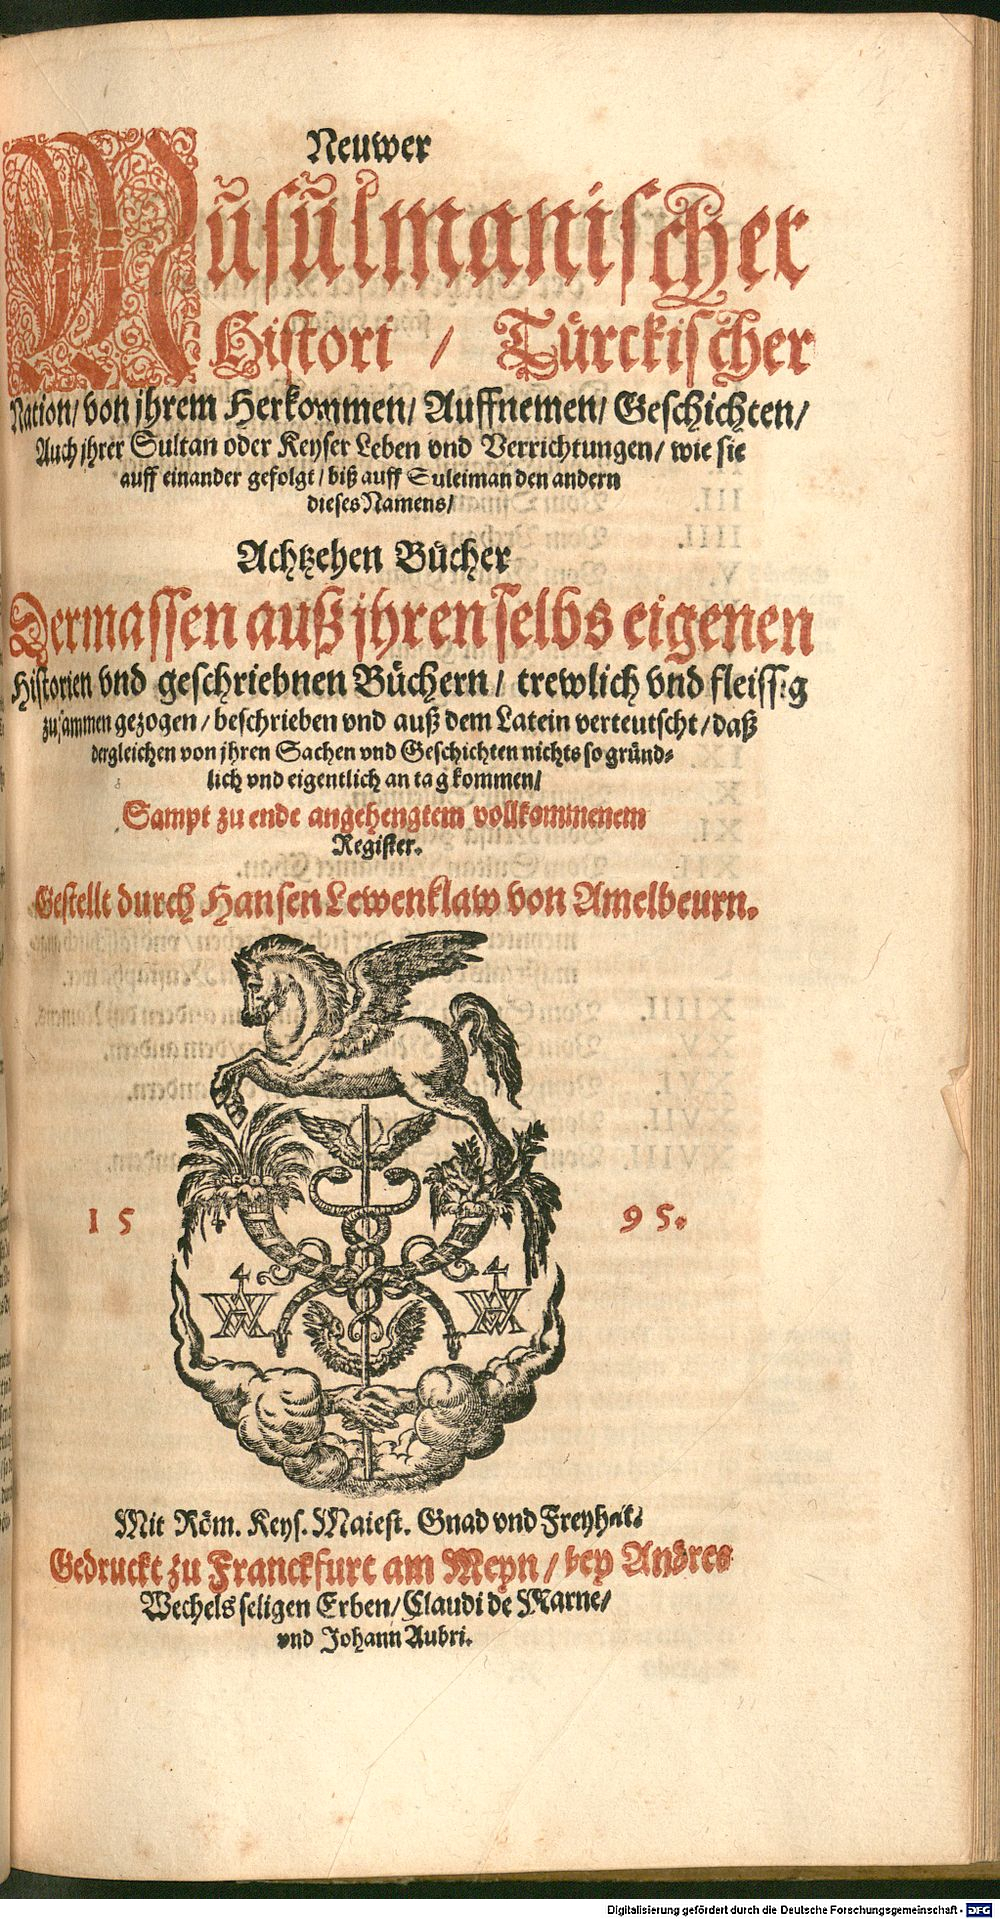 Neuwer
Musulmanischer
Histori / Türckischer
Nation/ von jhrem Herkommen/ Auffnemen/ Geschichten/
Auch jhrer Sultan oder Keyser Leben vnd Verrichtungen/ wie sie
auff einander gefolgt/ biß auff Suleiman den andern
dieses Namens/
Achtzehen Bücher
Dermassen auß jhren selbs eigenen
Historien vnd geschriebnen Büchern/ trewlich vnd fleissig
zusammen gezogen/ beschrieben vnd auß dem Latein verteutscht/ daß
dergleichen von jhren Sachen vnd Geschichten nichts so gründ-
lich vnd eigentlich an tag kommen/
Sampt zu ende angehengtem vollkommenem
Register.
Gestellt durch Hansen Lewenklaw von Amelbeurn.
15 95.
Mit Röm. Keys. Maiest. Gnad vnd Freyheit.
Gedruckt zu Franckfurt am Meyn/ bey Andres
Wechels seligen Erben/ Claudi de Marne/
vnd Johann Aubri.
Digitalisierung gefördert durch die Deutsche Forschungsgemeinschaft - DFG